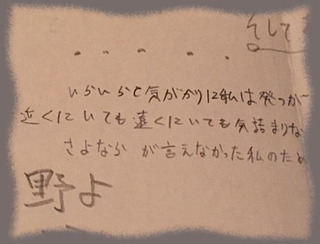 そして
・・・・・
いらいらと気がかりに私は発つが
近くにいても遠くにいても気詰まりな
さよなら が言えなかった私のため
野よ